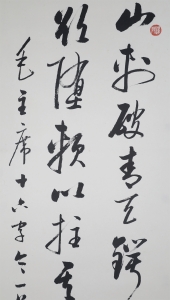 山刺破青天锷
欲堕赖以拄其
毛主席十六字令一首